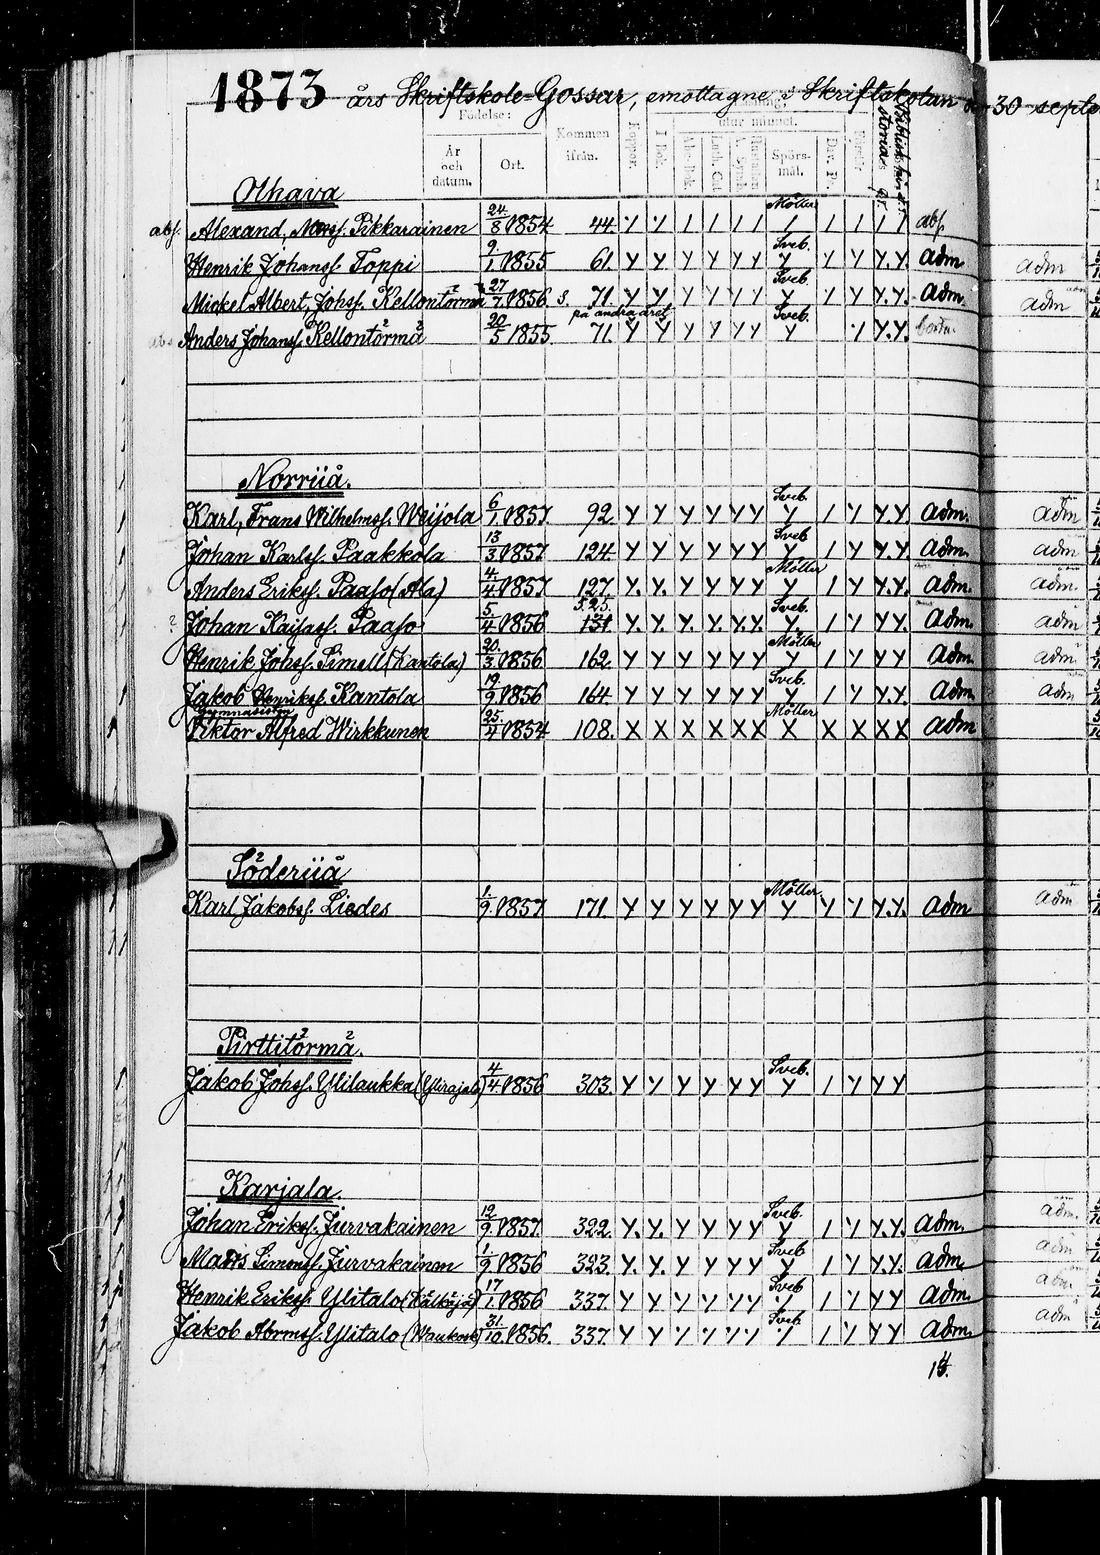 1873 års Skriftskole-Gossar, emottagne i Skriftskolan den 30 septe
Födelse: Kommen ifrån. Koppor. I bok. utur minnet.
År och datum. Ort. Abc-bok. Luth. Cat. Spörs-mål. Dav. Ps.
Olhava
abs. Alexand. Pikkarainen 24/8 1854 44 Y Y / / / / Möller / / / / / abs.
Henrik Johanss. Toppi 9/1 1855 61. Y Y / / / / Sveb. Y / Y Y. Y adm adm
Mickel Albert, Johss. Kellontörmä 27/7 1856 s. 71 Y Y Y Y Y Y Sveb. Y / Y Y. Y. adm. adm
på andra året
Anders Johanss. Kellontörmä 20/5 1855 71. Y Y Y Y Y Y Sveb. Y Y Y. Y.
Norriiå.
Karl, Frans Wilhelmss. Weijola 6/1 1857. 92. Y Y Y Y Y Y Sveb. Y / Y Y. Y adm. adm
Johan Karlss. Paakkola 13/3 1857 124 Y Y Y Y Y Y Sveb Y / Y Y. Y adm. adm
Anders Erikss. Paaso (Ala) 4./4 1857 127. Y. Y. Y Y Y Y Möller Y / Y Y. Y. adm. adm
? Johan Kaisass. Paaso 5./4 1856 131. 525. Y. Y. Y. Y. Y. Y. Sveb. Y / Y Y Y. adm. adm
Henrik Johss. Simell (Kantola) 20./3 1856 162. Y Y Y Y Y Y Möller Y / Y Y Y adm. adm
Jakob Henrikss. Kantola 19./9 1856 164. Y Y Y Y Y Y Sveb. Y / Y Y Y. adm. adm
Gymnasisten
Viktor Alfred Wirkkunen 25./4 1854 108. X X X X X X Möller X X X X X adm
Söderiiå
Karl Jakobss. Liedes 1./9 1857 171. Y Y Y Y Y Y Möller Y Y Y Y. Y. adm adm
Pirttitörmä.
Jakob Johss. Ylilaukka (Ylirajala) 4/4 1856 303. Y Y Y Y Y Y Sveb. Y / Y Y Y
Karjala.
Johan Erikss. Jurvakainen 12/9 1857. 322. Y. Y. Y Y Y Y Sveb. Y / Y Y. Y. adm. adm.
Matts Simonss. Jurvakainen 1./9 1856 323. Y. Y. Y Y Y Y Sveb Y / Y Y. Y. adm. adm
Henrik Erikss. Ylitalo (Kälkäjä) 17/1 1856 337. Y Y Y Y Y Y Sveb Y / Y Y Y adm. adm.
Jakob Abrmss. Ylitalo 31/10 1856. 337. Y Y Y Y Y Y Sveb. Y / Y Y Y adm. adm
14.